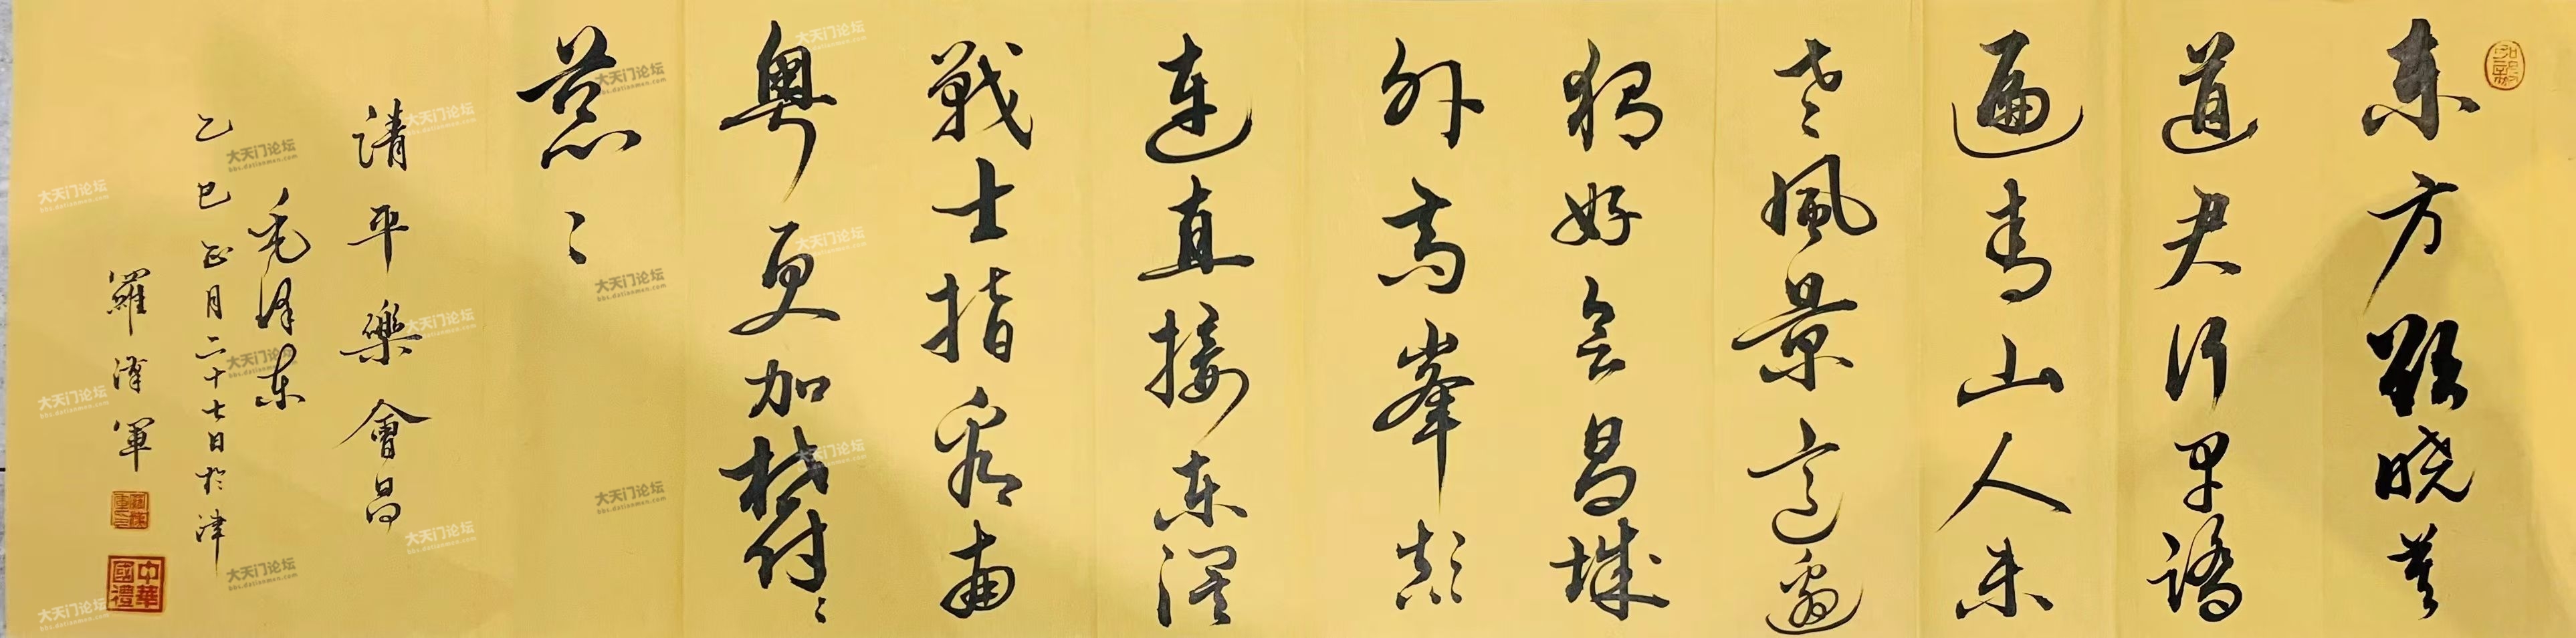 东方欲晓莫
道君行早踏
遍青山人未
老風景這邊
独好会昌城
外高峯颠
连直接东溟
戰士指看南
粤更加鬱〻
葱〻
清平樂會昌
毛泽东
乙巳正月二十七日於津
羅 軍
中華國禮
大天门论坛
bbs.datianmen.com